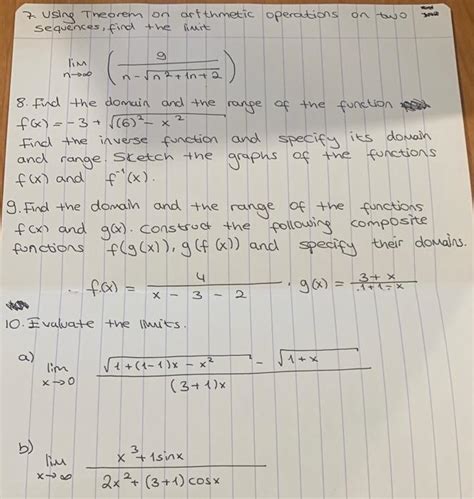 7. Using Theorem on arithmetic operations on two
sequences, find the limit
lim n→∞ ( 9 / (n - √(n² + 1n + 2)) )
8. Find the domain and the range of the function
f(x) = -3 + √((6)² - x²)
Find the inverse function and specify its domain
and range. Sketch the graphs of the functions
f(x) and f⁻¹(x).
9. Find the domain and the range of the functions
f(x) and g(x). Construct the following composite
functions f(g(x)), g(f(x)) and specify their domains.
f(x) = 4 / (x - 3 - 2) . g(x) = (3 + x) / (1 + 1 - x)
10. Evaluate the limits.
a) lim x→0 (√(1 + (1-1)x - x²) - √(1 + x)) / ((3+1)x)
b) lim x→∞ (x³ + 1sinx) / (2x² + (3+1)cosx)